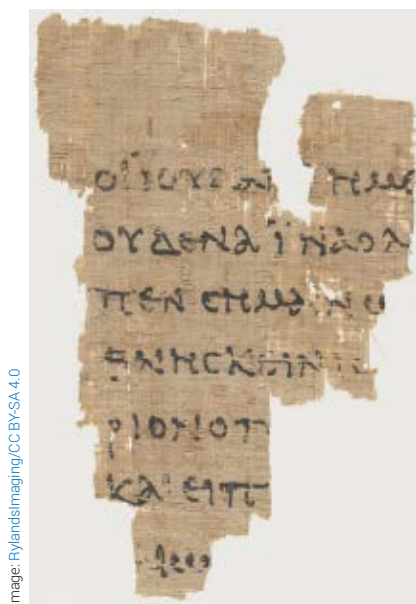 ΟΙ ΙΟΥΔΑΙ ΗΜΕ
ΟΥΔΕΝΑ ΪΝΑ Ο Λ
ΠΕΝ CΗΜΑΙΝΩ
ΘΝΗCΚΕΙΝ
ΡΙΟΝ Ο Π
ΚΑΙ ΕΙΠ
mage: RylandsImaging/CC BY-SA 4.0